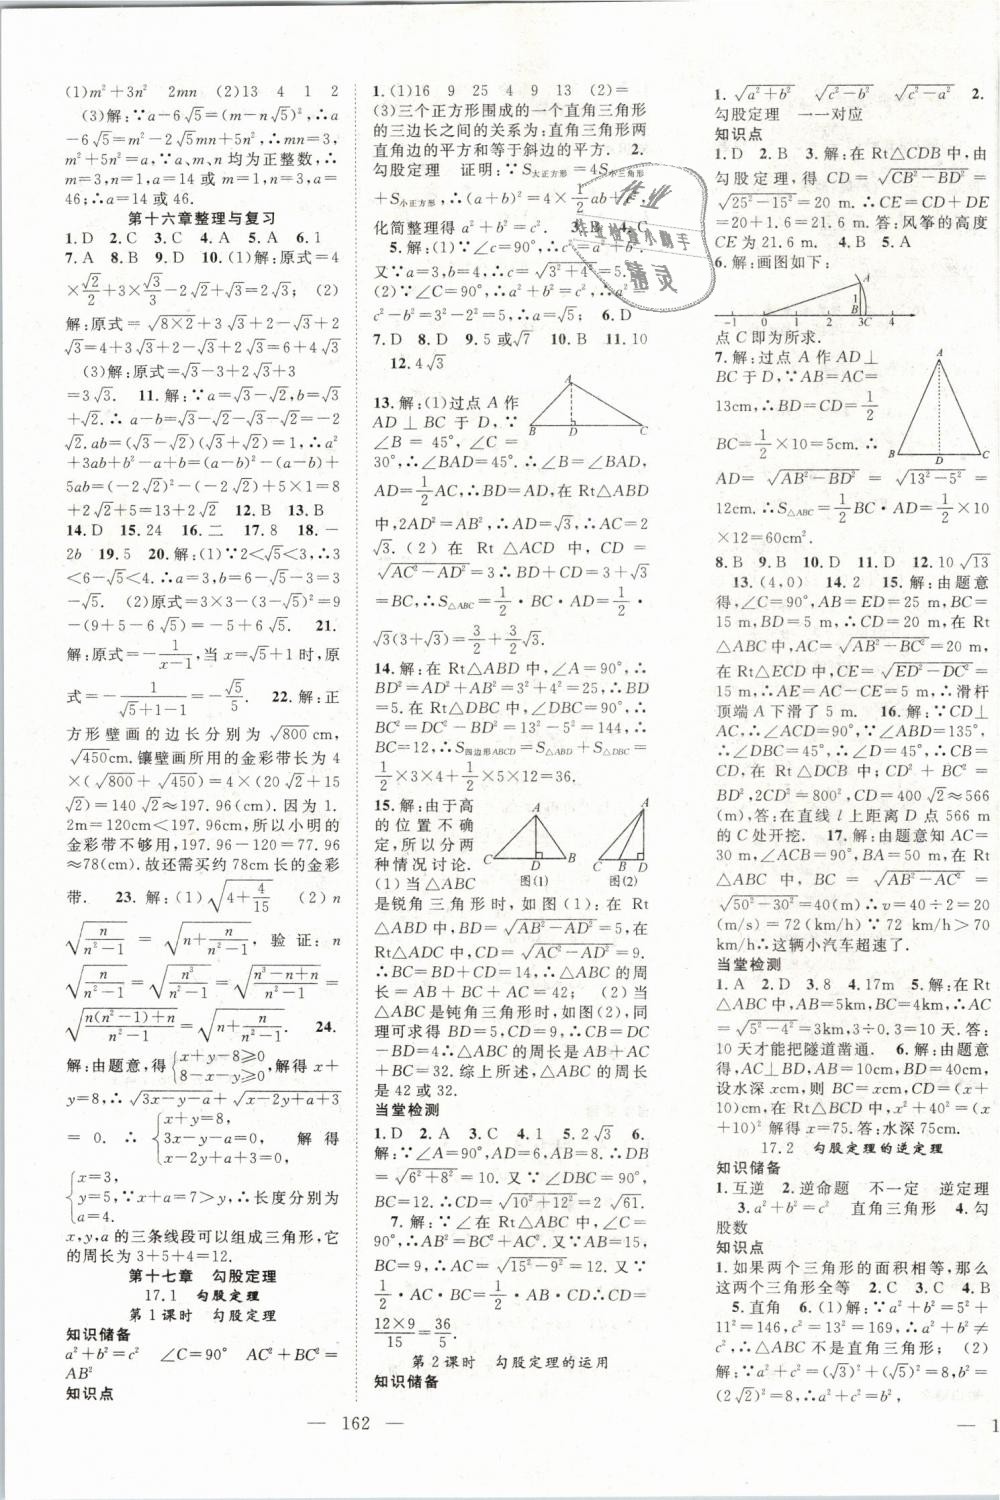 (1)m²+3n²　2mn　(2)13　4　1　2
(3)解:∵a-6√5=(m-n√5)²,∴a
-6√5=m²-2√5mn+5n²,∴mn=3,
m²+5n²=a,∵a、m、n 均为正整数,∴m
=3,n=1,a=14 或 m=1,n=3,a=
46;∴a=14 或 46.
第十六章整理与复习
1.D　2.C　3.C　4.A　5.A　6.1
7.A　8.B　9.D　10.(1)解:原式=4
×√2/2+3×√3/3-2√2+√3=2√3;　(2)
解:原式=√(8×2)+3√3-2√3+2
√3=4+3√3-2√3+2√3=6+4√3
(3)解:原式=√3-3+2√3+3
=3√3.　11.解:∵a=√3-√2,b=√3
+√2.∴a-b=√3-√2-√3-√2=-2
√2.ab=(√3-√2)(√3+√2)=1,∴a²
+3ab+b²-a+b=(a-b)²-(a-b)+
5ab=(-2√2)²-(-2√2)+5×1=8
+2√2+5=13+2√2　12.B　13.B
14.D　15.24　16.二　17.8　18.-
2b　19.5　20.解:(1)∵2<√5<3,∴3
<6-√5<4.∴a=3,b=6-√5-3=3
-√5.　(2)原式=3×3-(3-√5)²=9
-(9+5-6√5)=-5+6√5.　21.
解:原式=-1/(x-1),当 x=√5+1 时,原
式=-1/(√5+1-1)=-√5/5.　22.解:正
方形壁画的边长分别为√800 cm,
√450cm.镶壁画所用的金彩带长为 4
×(√800+√450)=4×(20√2+15
√2)=140√2≈197.96(cm).因为 1.
2m=120cm<197.96cm,所以小明的
金彩带不够用,197.96-120=77.96
≈78(cm).故还需买约 78cm 长的金彩
带.　23.解:(1)√(4+4/15)　(2)n
√(n/(n²-1))=√(n+n/(n²-1)),验证:n
√(n/(n²-1))=√(n³/(n²-1))=√((n³-n+n)/(n²-1))=
√((n(n²-1)+n)/(n²-1))=√(n+n/(n²-1)).　24.
解:由题意,得{x+y-8≥0 8-x-y≥0,解得 x+
y=8,∴√(3x-y-a)+√(x-2y+a+3)
=0.∴{x+y=8 3x-y-a=0 x-2y+a+3=0,解得
{x=3, y=5, a=4.∵x+a=7>y,∴长度分别为
x,y,a 的三条线段可以组成三角形,它
的周长为 3+5+4=12.
第十七章　勾股定理
17.1　勾股定理
第 1 课时　勾股定理
知识储备
a²+b²=c²　∠C=90°　AC²+BC²=
AB²
知识点
1.(1)16　9　25　4　9　13　(2)=
(3)三个正方形围成的一个直角三角形
的三边长之间的关系为:直角三角形两
直角边的平方和等于斜边的平方.　2.
勾股定理　证明:∵S大正方形=4S小三角形
+S小正方形,∴(a+b)²=4×1/2ab+c².
化简整理得 a²+b²=c².　3.B　4.C
5.解:(1)∵∠c=90°,∴c²=a²+b².
∵a=3,b=4,∴c=√(3²+4²)=5.
(2)∵∠C=90°,∴a²+b²=c²,∴a²=
c²-b²=3²-2²=5,∴a=√5;　6.D
7.D　8.D　9.5 或√7　10.B　11.10
12.4√3
13.解:(1)过点 A 作
AD⊥BC 于 D,∵
∠B=45°,∠C=
30°,∴∠BAD=45°.∴∠BAD=∠B,
AD=1/2AC,∴BD=AD,在 Rt△ABD
中,2AD²=AB²,∴AD=√3,∴AC=2
√3.(2)在 Rt△ACD 中,CD=
√(AC²-AD²)=3∴BD+CD=3+√3
=BC,∴S△ABC=1/2·BC·AD=1/2·
√3(3+√3)=3/2+3/2√3.
14.解:在 Rt△ABD 中,∠A=90°,∴
BD²=AD²+AB²=3²+4²=25,∴BD
=5.在 Rt△DBC 中,∠DBC=90°,∴
BC²=DC²-BD²=13²-5²=144,∴
BC=12,∴S四边形ABCD=S△ABD+S△DBC=
1/2×3×4+1/2×5×12=36.
15.解:由于高
的位置不确
定,所以分两
种情况讨论.
(1)当△ABC
是锐角三角形时,如图(1):在 Rt
△ABD 中,BD=√(AB²-AD²)=5,在
Rt△ADC 中,CD=√(AC²-AD²)=9.
∴BC=BD+CD=14,∴△ABC 的周
长=AB+BC+AC=42;　(2)当
△ABC 是钝角三角形时,如图(2),同
理可求得 BD=5,CD=9,∴CB=DC
-BD=4∴△ABC 的周长是 AB+AC
+BC=32.综上所述,△ABC 的周长
是 42 或 32.
当堂检测
1.D　2.A　3.C　4.1　5.2√3　6.
解:∵∠A=90°,AD=6,AB=8.∴DB
=√(6²+8²)=10.又∵∠DBC=90°,
BC=12.∴CD=√(10²+12²)=2√61.
7.解:∵∠ACB=90°,又∵AB=15,
BC=9,∴AC=√(15²-9²)=12.∴
1/2·AC·BC=1/2·AB·CD∴CD=
12×9/15=36/5.
第 2 课时　勾股定理的运用
知识储备
1.√(a²+b²)　√(c²-b²)　√(c²-a²)　2.
勾股定理　一一对应
知识点
1.D　2.B　3.解:在 Rt△CDB 中,由
勾股定理,得 CD=√(CB²-BD²)=
√(25²-15²)=20,∴CE=CD+DE
=20+1.6=21.6.答:风筝的高度
CE 为 21.6 m.　4.B　5.A
6.解:画图如下:
点 C 即为所求.
7.解:过点 A 作 AD⊥
BC 于 D,∵AB=AC=
13cm,∴BD=CD=1/2
BC=1/2×10=5cm.∴
AD=√(AB²-BD²)=√(13²-5²)=
12cm,∴S△ABC=1/2BC·AD=1/2×10
×12=60cm².
8.B　9.B　10.D　11.D　12.10√13
13.(4,0)　14.2　15.解:由题意
得,∠C=90°,AB=ED=25 m,BC=
15 m,BD=5 m,DC=20 m,在 Rt
△ABC 中,AC=√(AB²-BC²)=20 m,
在 Rt△ECD 中,CE=√(ED²-DC²)=
15 m,∴AE=AC-CE=5 m,∴滑杆
顶端 A 下滑了 5 m.　16.解:∵CD⊥
AC,∴∠ACD=90°,∵∠ABD=135°,
∴∠DBC=45°,∴∠D=45°,∴CB=
CD,在 Rt△DCB 中;CD²+BC²=
BD²,2CD²=800²,CD=400√2≈566
(m),答:在直线 l 上距离 D 点 566m
的 C 处开挖.　17.解:由题意知 AC=
30 m,∠ACB=90°,BA=50 m,在 Rt
△ABC 中,BC=√(AB²-AC²)=
√(50²-30²)=40(m)∴v=40÷2=20
(m/s)=72(km/h)∵72 km/h>
70 km/h∴这辆小汽车超速了.
当堂检测
1.A　2.D　3.8　4.17m　5.解:在 Rt
△ABC 中,AB=5km,BC=4km,∴AC
=√(5²-4²)=3km,3÷0.3=10 天.答:
10 天才能把隧道凿通.　6.解:由题意
得,AC⊥BD,BC=10cm,BD=40cm,
设水深 xcm,则 BC=xcm,CD=(x+
10),在 Rt△BCD 中,x²+40²=(x
+10)².解得 x=75.答:水深 75cm.
17.2　勾股定理的逆定理
知识储备
1.互逆　2.逆命题　不一定　逆定理
3.a²+b²=c²　直角三角形　4.勾
股数
知识点
1.如果两个三角形的面积相等,那么
这两个三角形全等　2.C　3.C　4.B
5.直角　6.(1)解:∵a²+b²=5²+
11²=146,c²=13²=169,∴a²+b²≠
c²,∴△ABC 不是直角三角形;　(2)
解:∵a²+c²=(√3)²+(√5)²=8,b²=
(2√2)²=8,∴a²+c²=b²,
A
B
D
C
A
C
D
B
图(1)
A
C
B
D
图(2)
-1　0　1　2　3C　4
A
1
A
B
D
C
作业
作业检查小助手
精灵
— 162 —
— 1